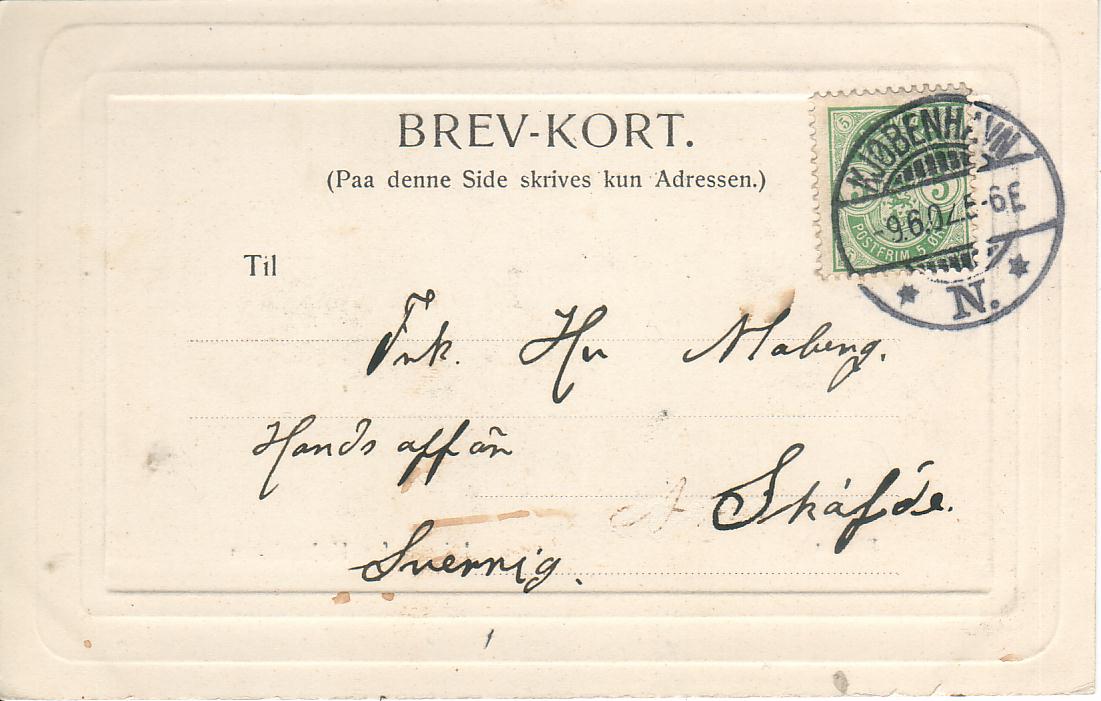 BREV-KORT.
(Paa denne Side skrives kun Adressen.)
KJØBENHAVN
5 5
-9.6.02. 5-6E
POSTFRIM. 5 ØRE
N.
Til
Frk. Hu Maberg.
Hands affär
Skåföe.
Sverrig.